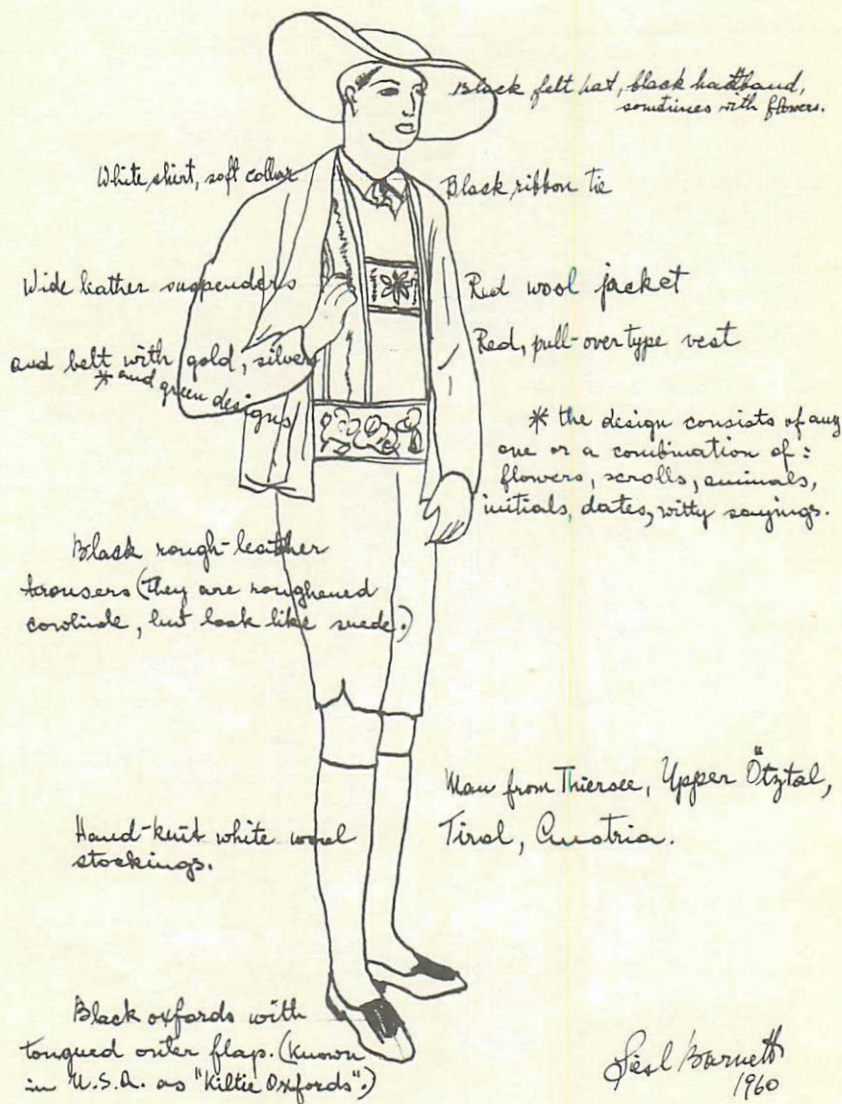 Black felt hat, black hatband,
sometimes with flowers.
White shirt, soft collar
Black ribbon tie
Wide leather suspenders
and belt with gold, silver
* and green designs
Red wool jacket
Red, pull-over type vest
* the design consists of any
one or a combination of:
flowers, scrolls, animals,
initials, dates, witty sayings.
Black rough-leather
trousers (they are roughened
cowhide, but look like suede.)
Man from Thiersee, Upper Ötztal,
Tirol, Austria.
Hand-knit white wool
stockings.
Black oxfords with
tongued outer flaps. (Known
in U.S.A. as "Kiltie Oxfords".)
Barnett
1960